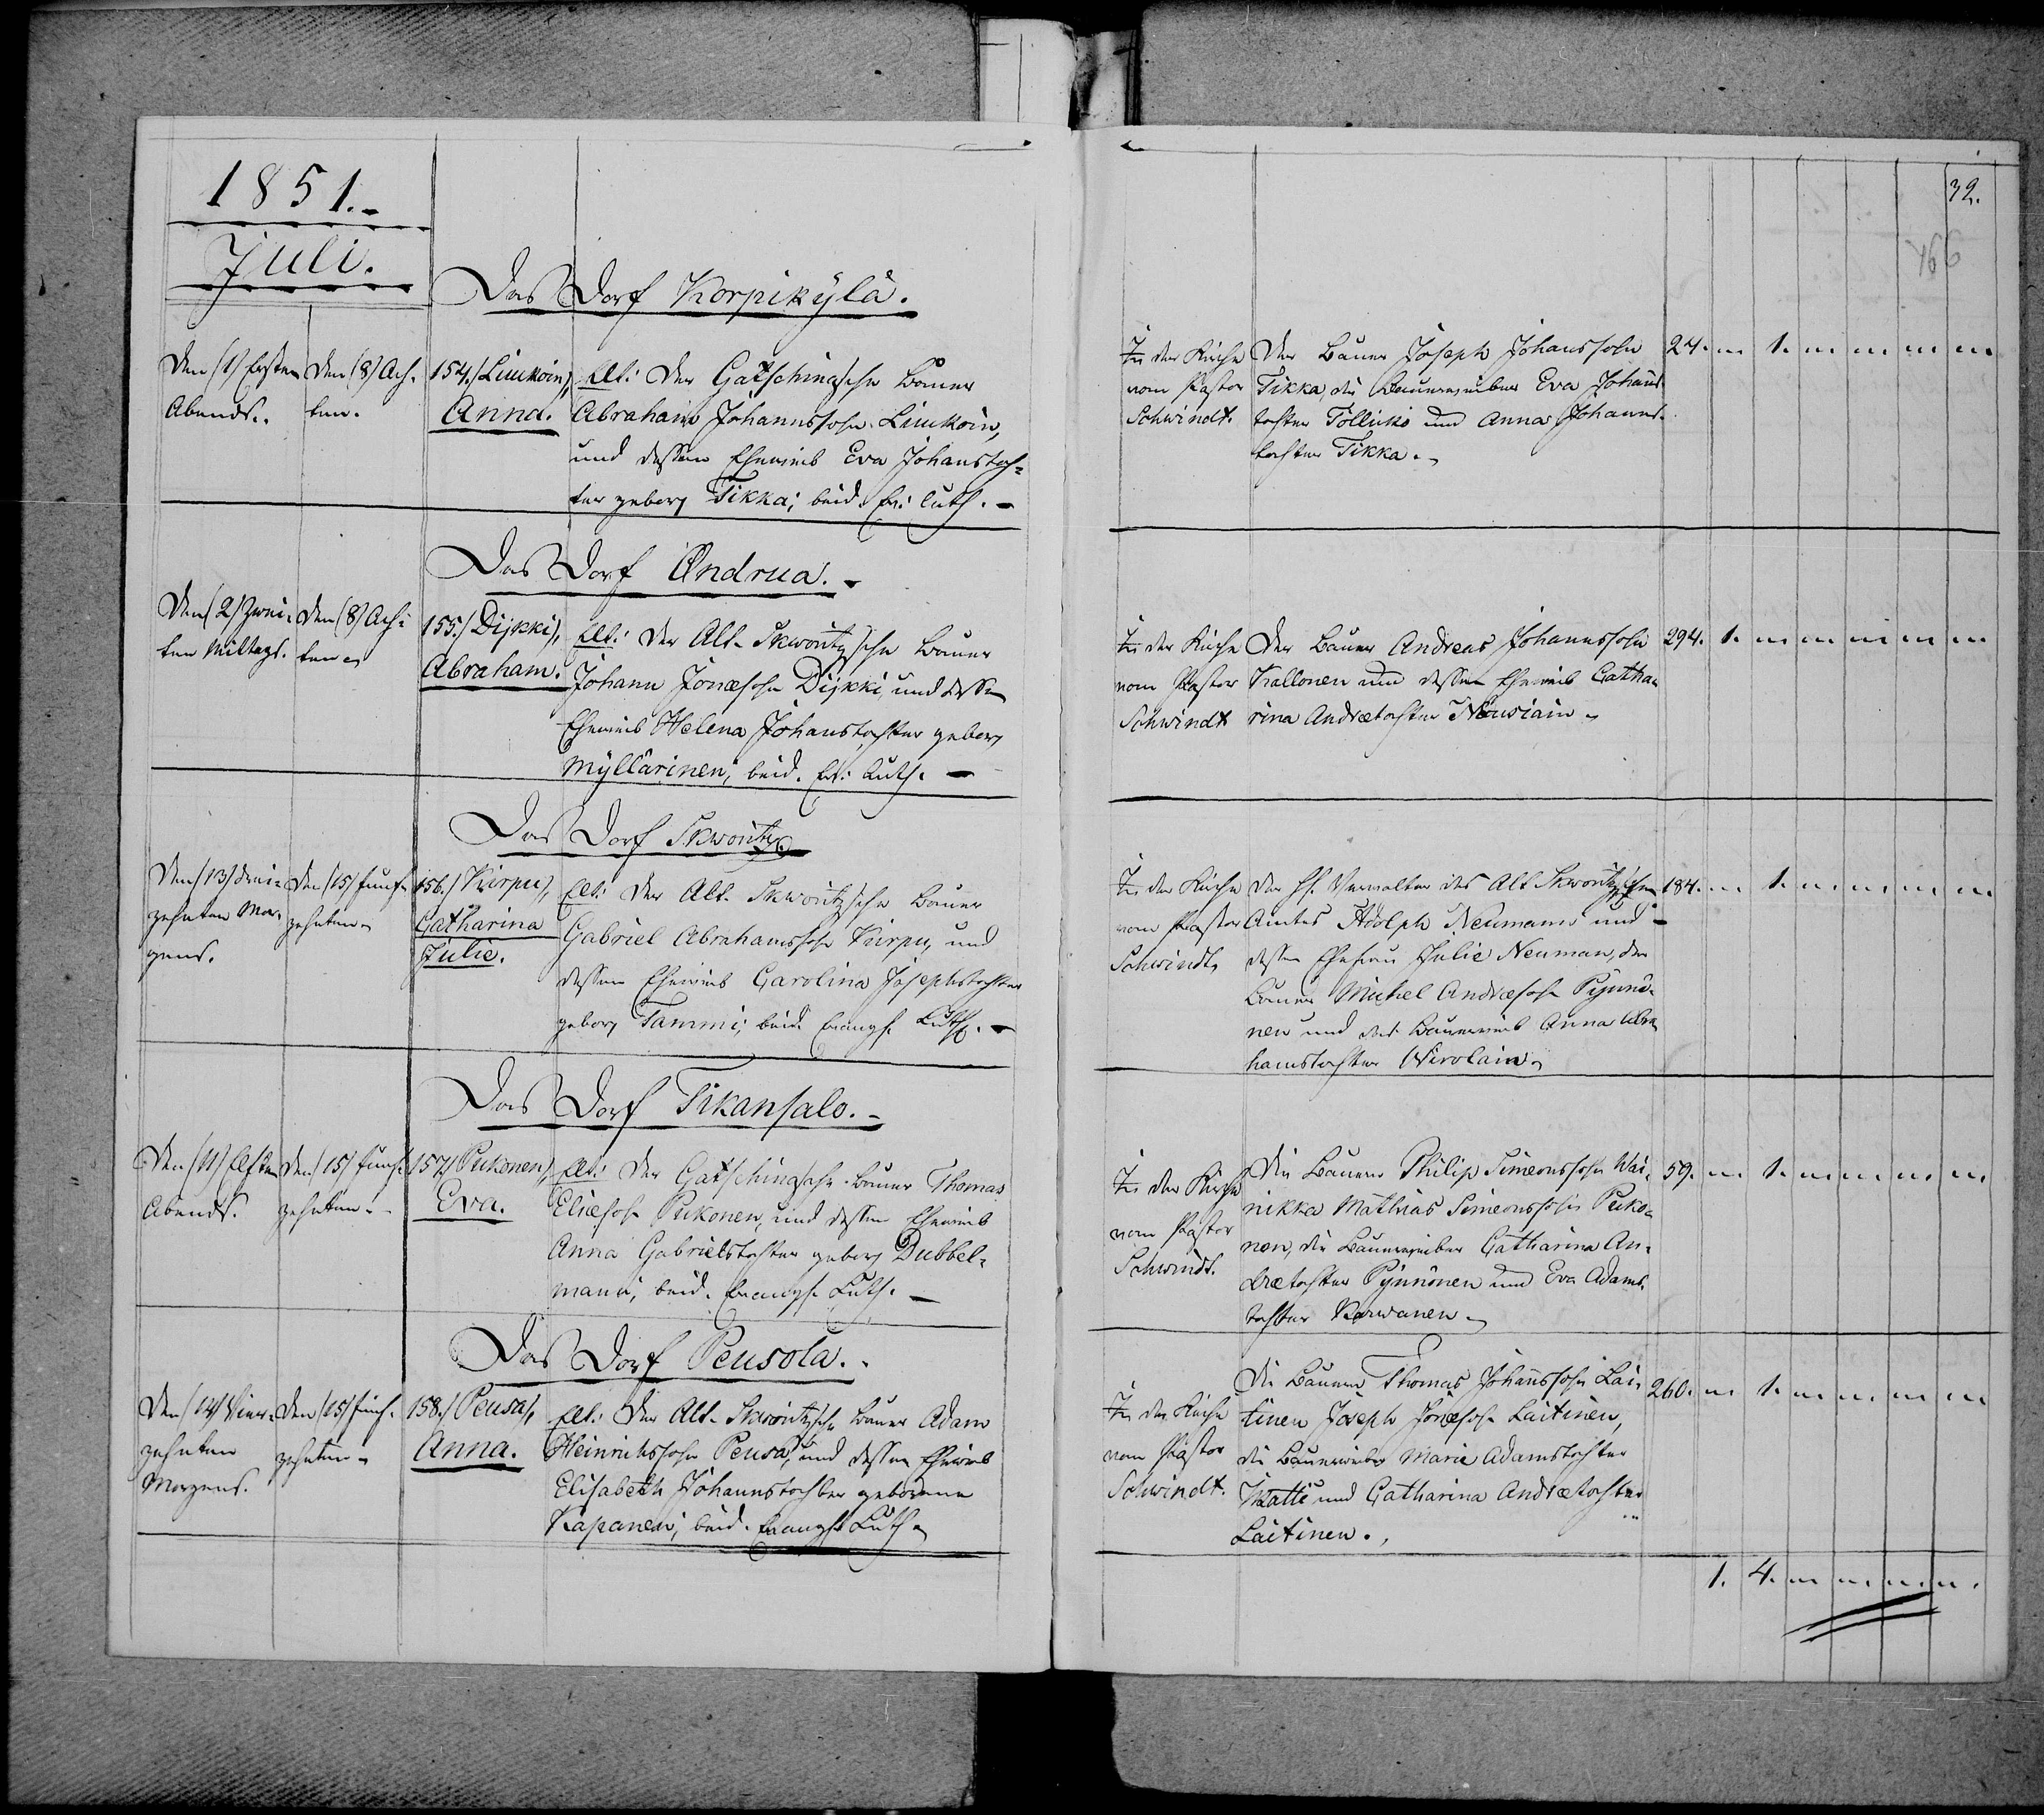 1851.
Juli.
Das Dorf Korpikylä.
Den (1) Ersten
Abends.
Den (8) Ach-
ten.
154.) Liukoin),
Anna.
Elt: Der Gatschinasche Bauer
Abraham Johannssohn Liukoin,
und dessen Eheweib Eva Johanstoch-
ter geborn Tikka; beid. Ev: Luth. –
In der Kirche
vom Pastor
Schwindt.
Der Bauer Joseph Johanssohn
Tikka, die Bauerweiber Eva Johans-
tochter Töllickö und Anna Johanns-
tochter Tikka.
24. 1.
Das Dorf Ondrua. –
Den (2) Zwei-
ten Mittags.
Den (8) Ach-
ten
155.) Dijkki),
Abraham.
Elt: Der Alt-Skworitzsche Bauer
Johann Jonæsohn Dijkki, und dessen
Eheweib Helena Johanstochter geborn
Myllärinen; beid. Ev: Luth. –
In der Kirche
vom Pastor
Schwindt
Der Bauer Andreas Johannssohn
Kallonen und dessen Eheweib Catha-
rina Andrætochter Nousiain
294. 1.
Das Dorf Skworitz.
Den (13) Drei-
zehnten Mor-
gens.
Den (15) Funf-
zehnten
156.) Kirpu),
Catharina
Julie.
Elt: Der Alt-Skworitzsche Bauer
Gabriel Abrahamssohn Kirpu, und
dessen Eheweib Carolina Josephstochter
geborn Tammi; beid. Evangl. Luth. –
In der Kirche
vom Pastor
Schwindt,
Der H. Verwalter des Alt Skworitzschen
Amtes Adolph Neumann und
dessen Ehefrau Julie Neuman, der
Bauer Michel Andræsohn Pijnnö-
nen und das Bauerweib Anna Abra-
hamstochter Wirolain
184. 1.
Das Dorf Tikansalo. –
Den (11) Elften
Abends.
Den (15) Funf-
zehnten
157.) Pukonen),
Eva.
Elt: Der Gatschinasche Bauer Thomas
Eliæsohn Pukonen, und dessen Eheweib
Anna Gabrielstochter geborn Dubbel-
mann, beid. Evangl. Luth. –
In der Kirche
vom Pastor
Schwindt.
Die Bauern Philip Simeonssohn Wai-
nikka Mathias Simeonssohn Puko-
nen, die Bauerweiber Catharina An-
drætochter Pynnönen und Eva Adams-
tochter Karwanen
59. 1.
Das Dorf Peusola.
Den (14) Vier-
zehnten
Morgens.
Den (15) Funf-
zehnten
158.) Peusa),
Anna.
Elt: Der Alt-Skworitzsche Bauer Adam
Heinrichssohn Peusa, und dessen Eheweib
Elisabeth Johannstochter geborene
Kapanen; beid. Evangl. Luth.
In der Kirche
vom Pastor
Schwindt.
Die Bauern Thomas Johanssohn Lai-
tinen Joseph Jonæsohn Laitinen,
die Bauerweiber Marie Adamstochter
Watti und Catharina Andrætochter
Laitinen.
260. 1.
1. 4.
32.